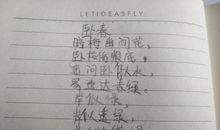 LETIDEASFLY
卧春
暗梅幽闻花,
卧枝伤恨底,
遥闻卧似水,
易透达春绿。
岸似绿,
岸似透绿,